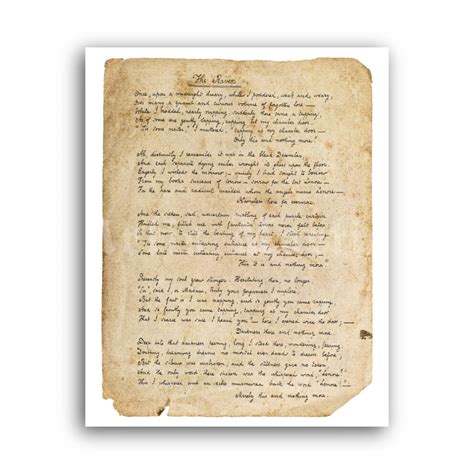 The Raven.
Once, upon a midnight dreary, while I pondered, weak and weary,
Over many a quaint and curious volume of forgotten lore —
While I nodded, nearly napping, suddenly there came a tapping,
As of some one gently rapping, rapping at my chamber door —
"'Tis some visiter," I muttered, "tapping at my chamber door —
Only this and nothing more."
Ah, distinctly I remember it was in the bleak December,
And each separate dying ember wrought its ghost upon the floor.
Eagerly I wished the morrow; — vainly I had sought to borrow
From my books surcease of sorrow — sorrow for the lost Lenore —
For the rare and radiant maiden whom the angels name Lenore —
Nameless here for evermore.
And the silken, sad, uncertain rustling of each purple curtain
Thrilled me, filled me with fantastic terrors never felt before;
So that now, to still the beating of my heart, I stood repeating
"'Tis some visiter entreating entrance at my chamber door —
Some late visiter entreating entrance at my chamber door; —
This it is and nothing more."
Presently my soul grew stronger. Hesitating then no longer
"Sir," said I, "or Madam, truly your forgiveness I implore;
But the fact is I was napping, and so gently you came rapping,
And so faintly you came tapping, tapping at my chamber door
That I scarce was sure I heard you — here I opened wide the door; —
Darkness there and nothing more.
Deep into that darkness peering, long I stood there, wondering, fearing,
Doubting, dreaming dreams no mortal ever dared to dream before
But the silence was unbroken, and the stillness gave no token,
And the only word there spoken was the whispered word, "Lenore!"
This I whispered and an echo murmured back the word "Lenore!" —
Merely this and nothing more.